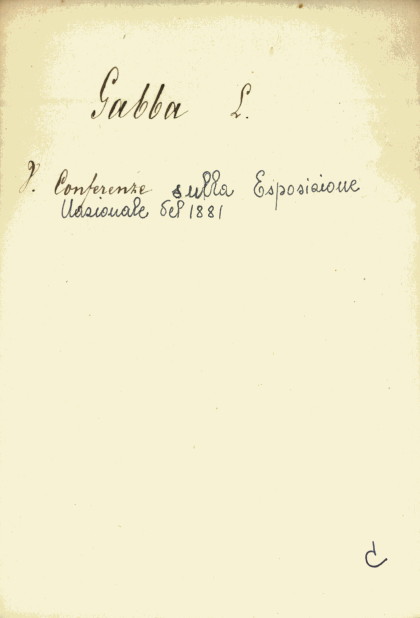 Gabba L.
V. Conferenze sulla Esposizione
Nazionale del 1881
C